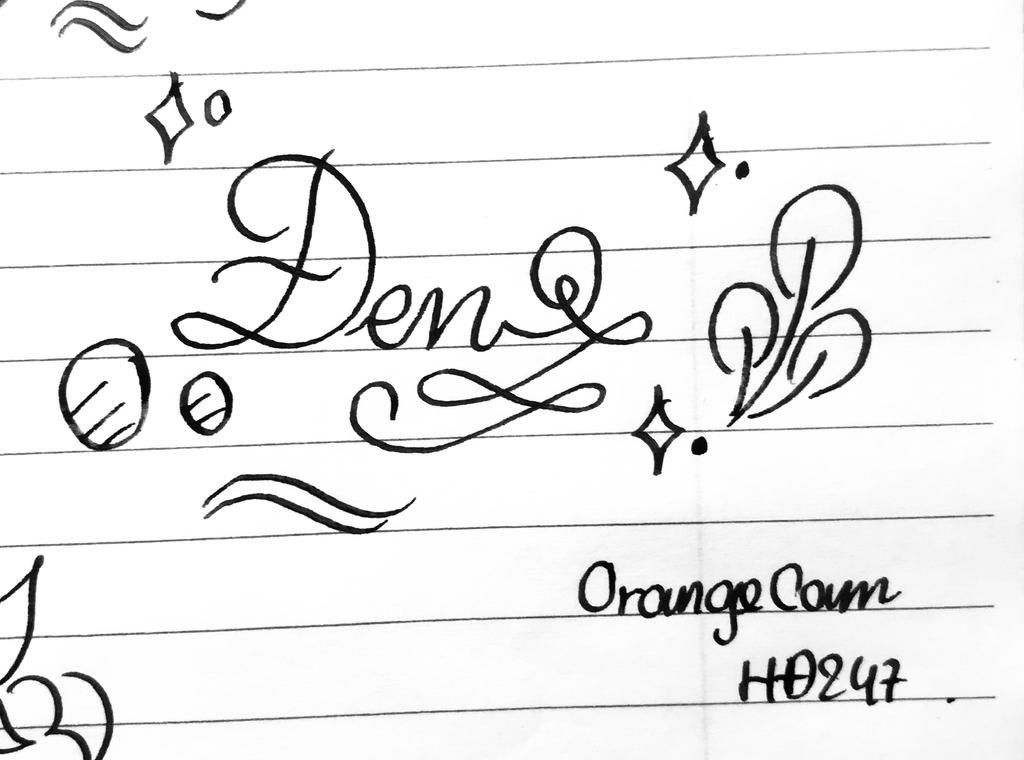 Deng
Orange Cam
HĐ247